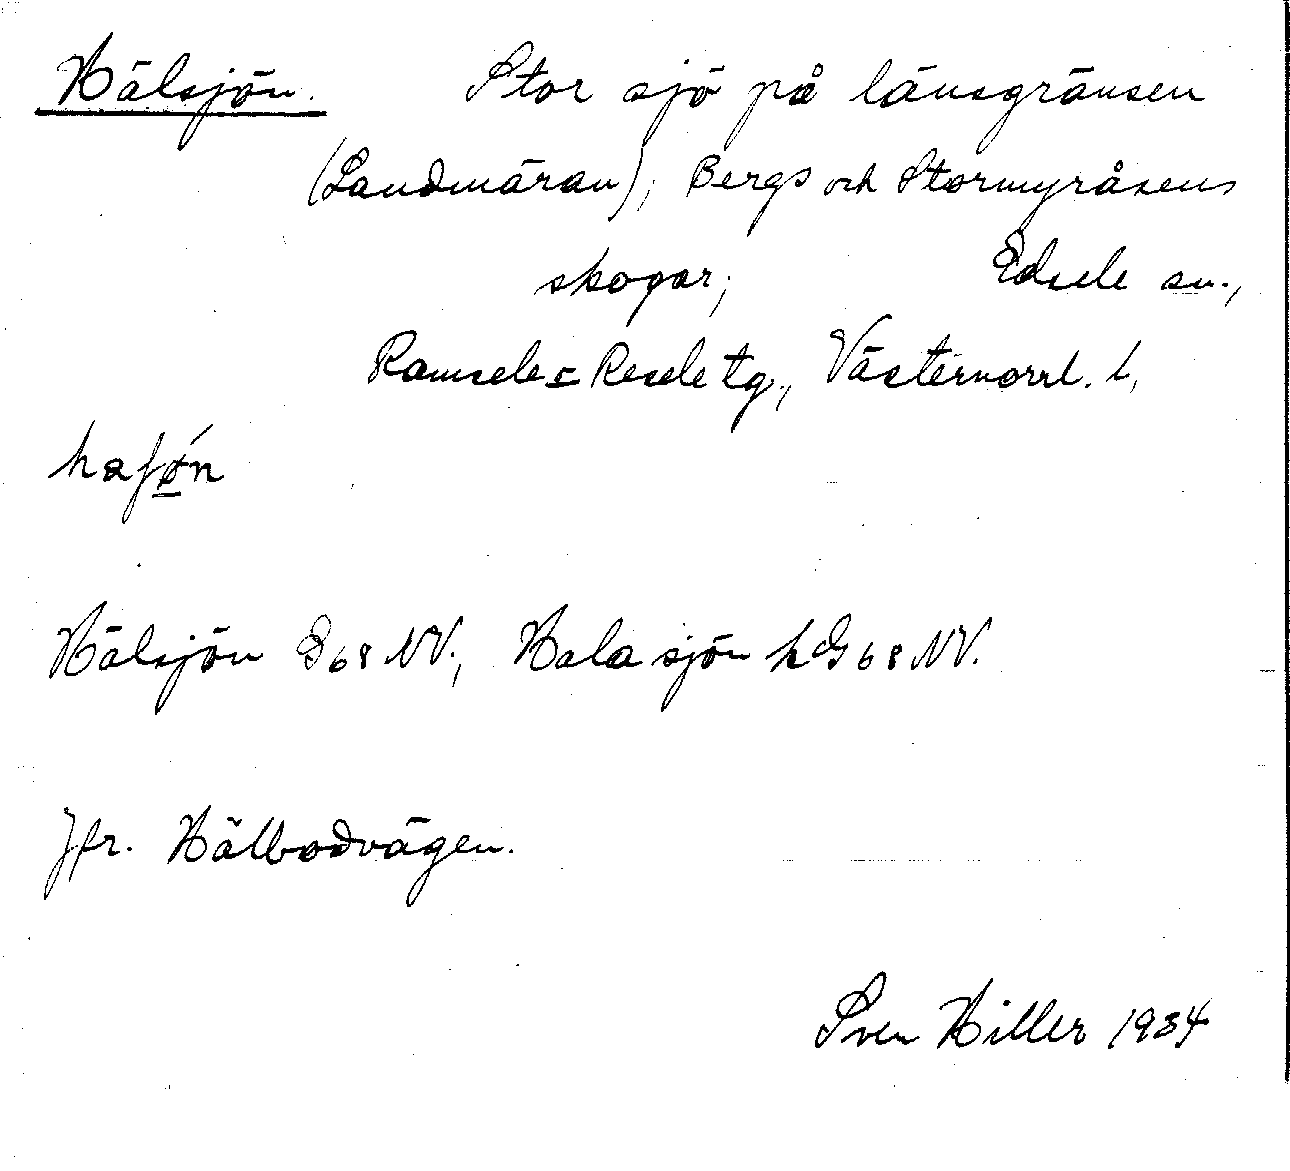 Hälsjön. Stor sjö på länsgränsen
(Landmäran); Bergs och Stormyråsens
skogar; Edsele sn.,
Ramsele = Resele tg., Västernorrl. l.
haʃǿn
Hälsjön G 68 NV., Hala sjön h G 68 NV.
Jfr. Hälbodvägen.
Sven Hiller 1934